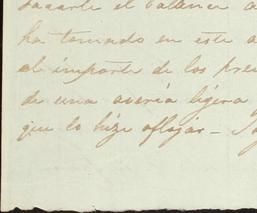 sacarle el balance a
ha tomado en este a
el importe de los pre
de una avería ligera
que lo hize aflojar _